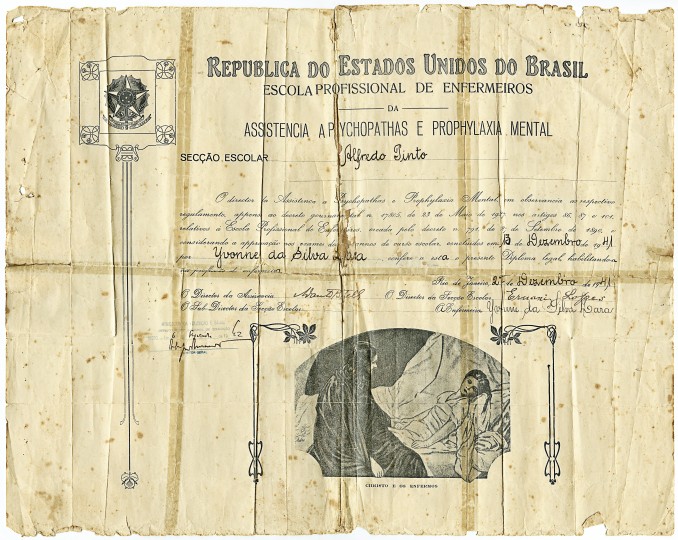 REPUBLICA DO ESTADOS UNIDOS DO BRASIL
ESCOLA PROFISSIONAL DE ENFERMEIROS
DA
ASSISTENCIA A PSYCHOPATHAS E PROPHYLAXIA MENTAL
SECÇÃO ESCOLAR Alfredo Pinto
O director da Assistencia a Psychopathas e Prophylaxia Mental em observancia as respectivo
regulamento, appenso ao decreto n. 17.805, de 23 de Maio de 1927 nos artigos 86, 87 e
relativos á Escola Profissional de Enfermeiros, creada pelo decreto n. 791, de de Setembro de 1890, e
considerando a approvação nos exames do curso escolar, concluidos em 13 de Dezembro de 1941
por Yvonne da Silva Lara confere a esta o presente Diploma legal habilitando-a
profissão de enfermeira
Rio de Janeiro, de Dezembro de 1941
O Director da Assistencia O Director da Secção Escolar Ernani Lopes
O Sub-Director da Secção Escolar A Enfermeira Yvonne da Silva Lara
CHRISTO E OS ENFERMOS